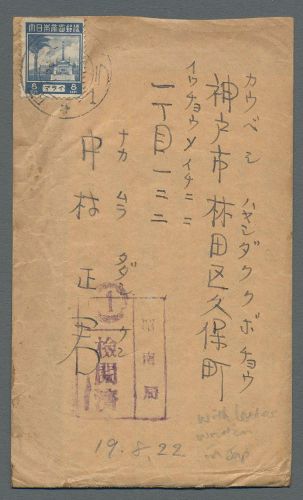 大日本帝国郵便
8
8
マライ
カウベシ
ハヤシダククボチョウ
神戸市林田区久保町
イッチョウメイチニニ
一丁目一二二
ナカムラ
中村正君
1
検閲済
昭南局
19.8.22
with letter
written
in Jap